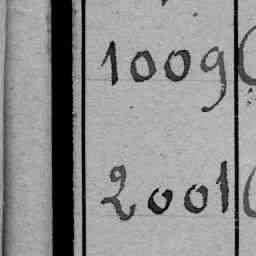 1009
2001